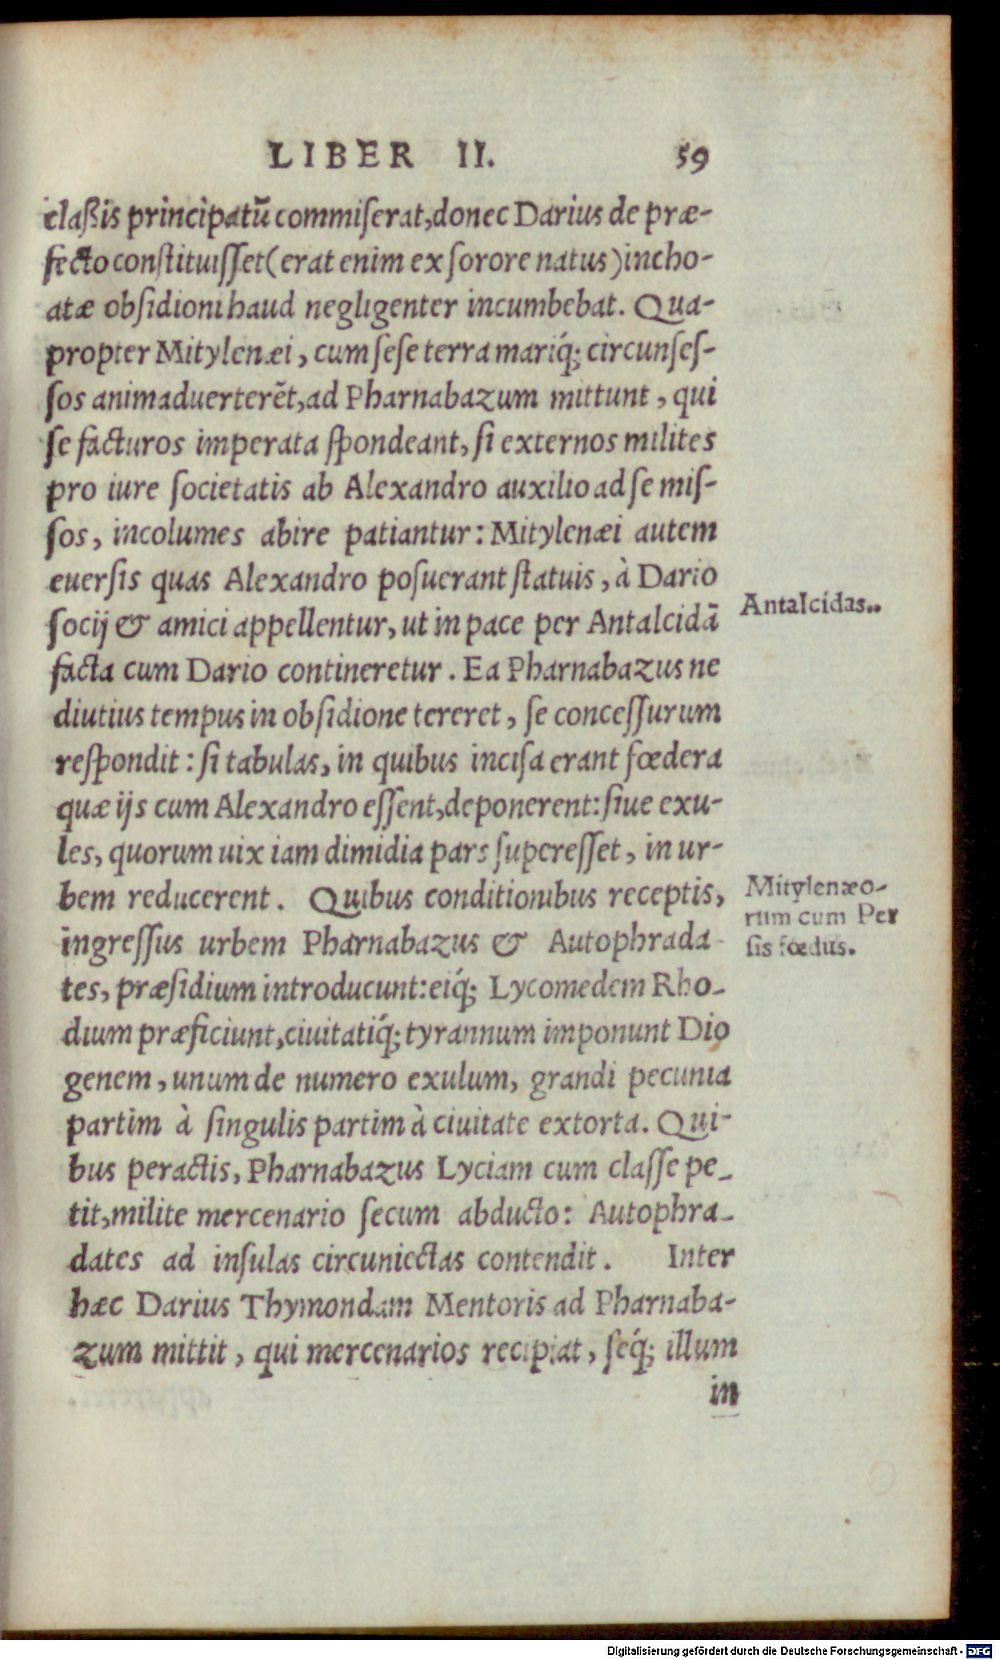 LIBER II. 59
claßis principatū commiſerat, donec Darius de præ-
fecto conſtituiſſet (erat enim ex ſorore natus) incho-
atæ obſidioni haud negligenter incumbebat. Qua-
propter Mitylenæi, cum ſeſe terra mariq́; circunſeſ-
ſos animaduerterẽt, ad Pharnabazum mittunt, qui
ſe facturos imperata ſpondeant, ſi externos milites
pro iure ſocietatis ab Alexandro auxilio ad ſe miſ-
ſos, incolumes abire patiantur: Mitylenæi autem
euerſis quas Alexandro poſuerant ſtatuis, à Dario
Antalcidas..
ſocij & amici appellentur, ut in pace per Antalcidā
facta cum Dario contineretur. Ea Pharnabazus ne
diutius tempus in obſidione tereret, ſe conceſſurum
reſpondit: ſi tabulas, in quibus inciſa erant fœdera
quæ ijs cum Alexandro eſſent, deponerent: ſiue exu-
les, quorum uix iam dimidia pars ſupereſſet, in ur-
bem reducerent. Quibus conditionibus receptis,
Mitylenæo-
rum cum Per
ſis fœdus.
ingreſſus urbem Pharnabazus & Autophrada-
tes, præſidium introducunt: eiq́; Lycomedem Rho-
dium præficiunt, ciuitatiq́; tyrannum imponunt Dio
genem, unum de numero exulum, grandi pecunia
partim à ſingulis partim à ciuitate extorta. Qui-
bus peractis, Pharnabazus Lyciam cum claſſe pe-
tit, milite mercenario ſecum abducto: Autophra-
dates ad inſulas circuniectas contendit. Inter
hæc Darius Thymondam Mentoris ad Pharnaba-
zum mittit, qui mercenarios recipiat, ſeq́; illum
in
Digitalisierung gefördert durch die Deutsche Forschungsgemeinschaft - DFG